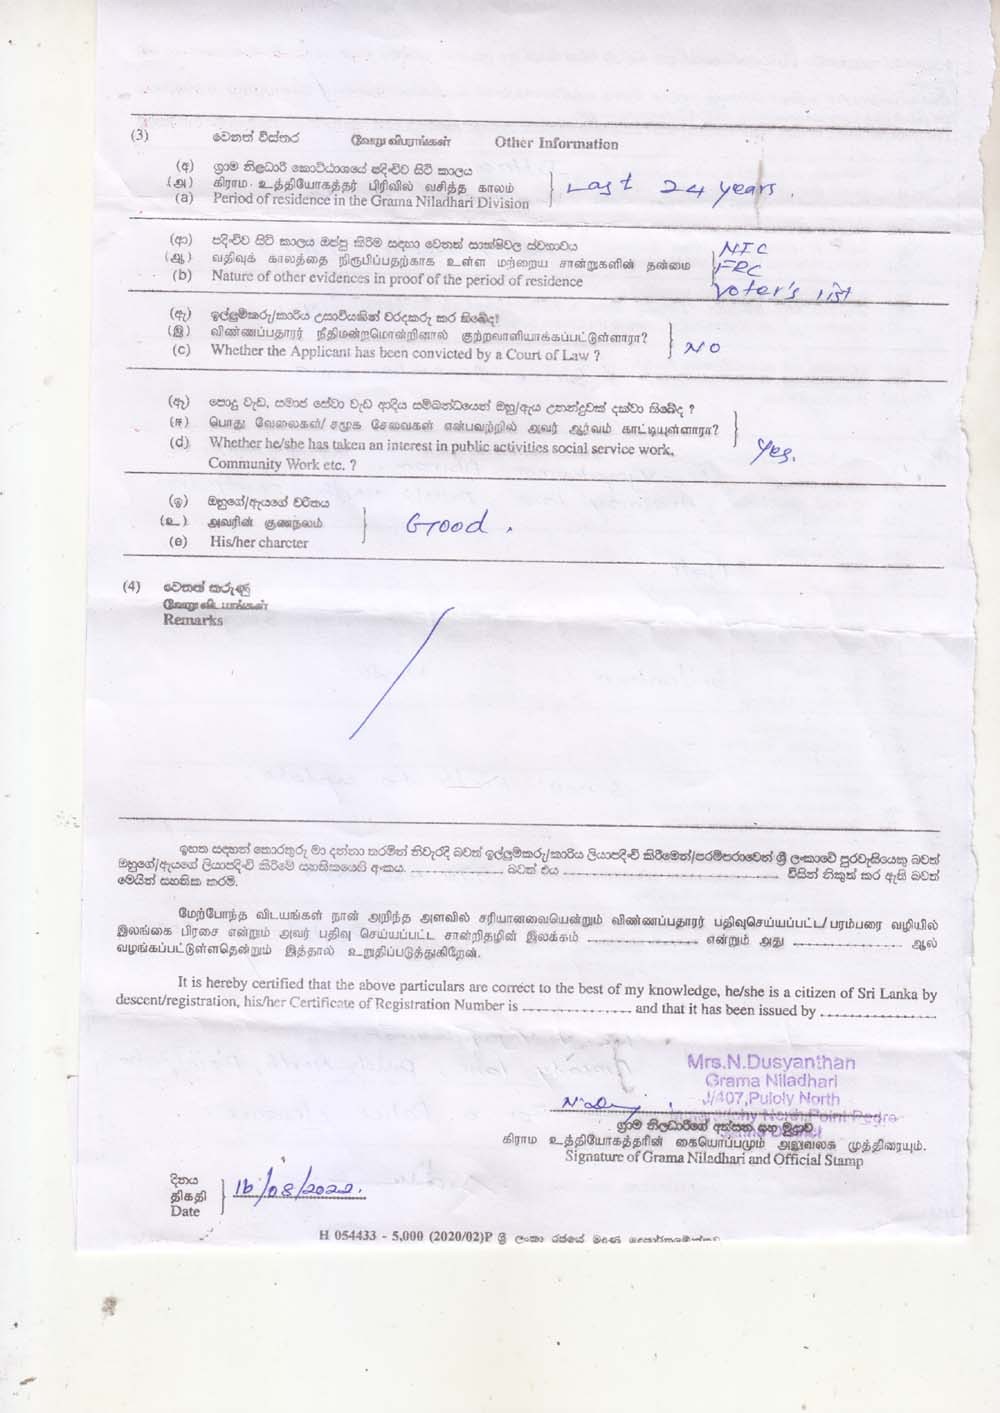 (3) වෙනත් විස්තර வேறு விபரங்கள் Other Information
(අ) ග්‍රාම නිළධාරී කොට්ඨාශයේ පදිංචිව සිටි කාලය
(அ) கிராம உத்தியோகத்தர் பிரிவில் வசித்த காலம்
(a) Period of residence in the Grama Niladhari Division
Last 24 years.
(ආ) පදිංචිව සිටි කාලය ඔප්පු කිරීම සඳහා වෙනත් සාක්ෂිවල ස්වභාවය
(ஆ) வதிவுக் காலத்தை நிரூபிப்பதற்காக உள்ள மற்றைய சான்றுகளின் தன்மை
(b) Nature of other evidences in proof of the period of residence
NIC
FRC
Voter's list
(ඇ) ඉල්ලුම්කරු/කාරිය උසාවියකින් වරදකරු කර තිබේද?
(இ) விண்ணப்பதாரர் நீதிமன்றமொன்றினால் குற்றவாளியாக்கப்பட்டுள்ளாரா?
(c) Whether the Applicant has been convicted by a Court of Law ?
NO
(ඈ) පොදු වැඩ, සමාජ සේවා වැඩ ආදිය සම්බන්ධයෙන් ඔහු/ඇය උනන්දුවක් දක්වා තිබේද ?
(ஈ) பொது வேலைகள்/ சமூக சேவைகள் என்பவற்றில் அவர் ஆர்வம் காட்டியுள்ளாரா?
(d) Whether he/she has taken an interest in public activities social service work,
Community Work etc. ?
Yes.
(ඉ) ඔහුගේ/ඇයගේ චරිතය
(உ) அவரின் குணநலம்
(e) His/her charcter
Good.
(4) වෙනත් කරුණු
வேறு விடயங்கள்
Remarks
ඉහත සඳහන් තොරතුරු මා දන්නා තරමින් නිවැරදි බවත් ඉල්ලුම්කරු/කාරිය ලියාපදිංචි කිරීමෙන්/පරම්පරාවෙන් ශ්‍රී ලංකාවේ පුරවැසියෙකු බවත්
ඔහුගේ/ඇයගේ ලියාපදිංචි කිරීමේ සහතිකයෙහි අංකය ........................ බවත් එය ........................ විසින් නිකුත් කර ඇති බවත්
මෙයින් සහතික කරමි.
மேற்போந்த விடயங்கள் நான் அறிந்த அளவில் சரியானவையென்றும் விண்ணப்பதாரர் பதிவுசெய்யப்பட்ட/ பரம்பரை வழியில்
இலங்கை பிரசை என்றும் அவர் பதிவு செய்யப்பட்ட சான்றிதழின் இலக்கம் ........................ என்றும் அது ........................ ஆல்
வழங்கப்பட்டுள்ளதென்றும் இத்தால் உறுதிப்படுத்துகிறேன்.
It is hereby certified that the above particulars are correct to the best of my knowledge, he/she is a citizen of Sri Lanka by
descent/registration, his/her Certificate of Registration Number is ........................ and that it has been issued by ........................
Mrs.N.Dusyanthan
Grama Niladhari
J/407,Puloly North
North,Point Pedro
ග්‍රාම නිලධාරීගේ අත්සන සහ මුද්‍රාව
கிராம உத்தியோகத்தரின் கையொப்பமும் அலுவலக முத்திரையும்.
Signature of Grama Niladhari and Official Stamp
දිනය
திகதி
Date
16/08/2022.
H 054433 - 5,000 (2020/02)P ශ්‍රී ලංකා රජයේ